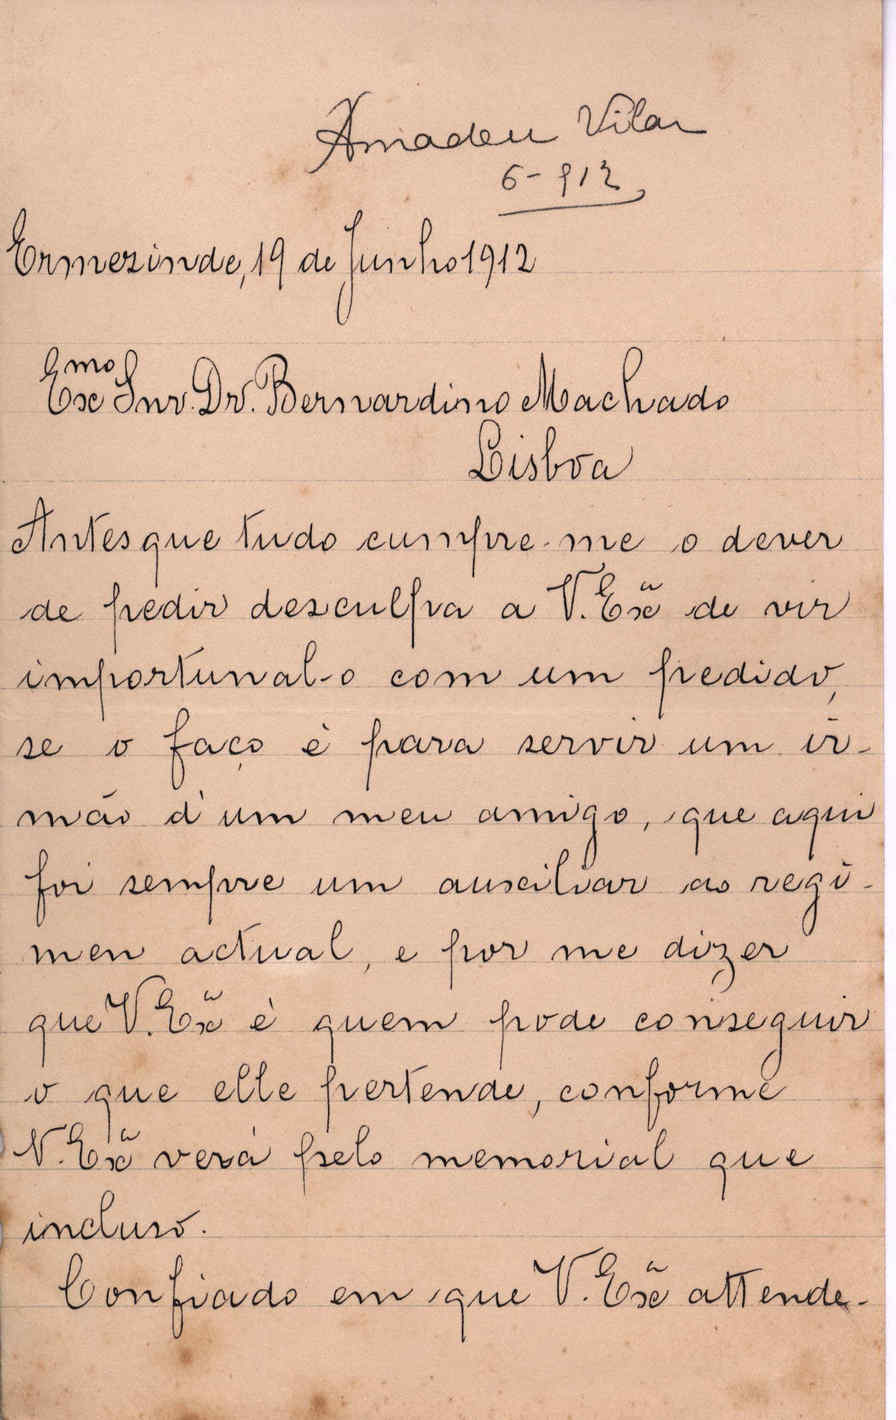 Amadeu Vilar
6-912
Ermezinde, 19 de Junho 1912
Exmo Snr. Dr. Bernardino Machado
Lisboa
Antes que tudo cumpre-me o dever
de pedir desculpa a V. Exã de vir
importunal-o com um pedido,
se o faço è para servir um ir-
mão d'um meu amigo, que aqui
foi sempre um auxiliar ao regi-
men actual, e por me dizer
que V. Exã è quem pode conseguir
o que elle pertende, conforme
V. Exã verá pelo memorial que
incluso.
Confiado em que V. Exã attende-